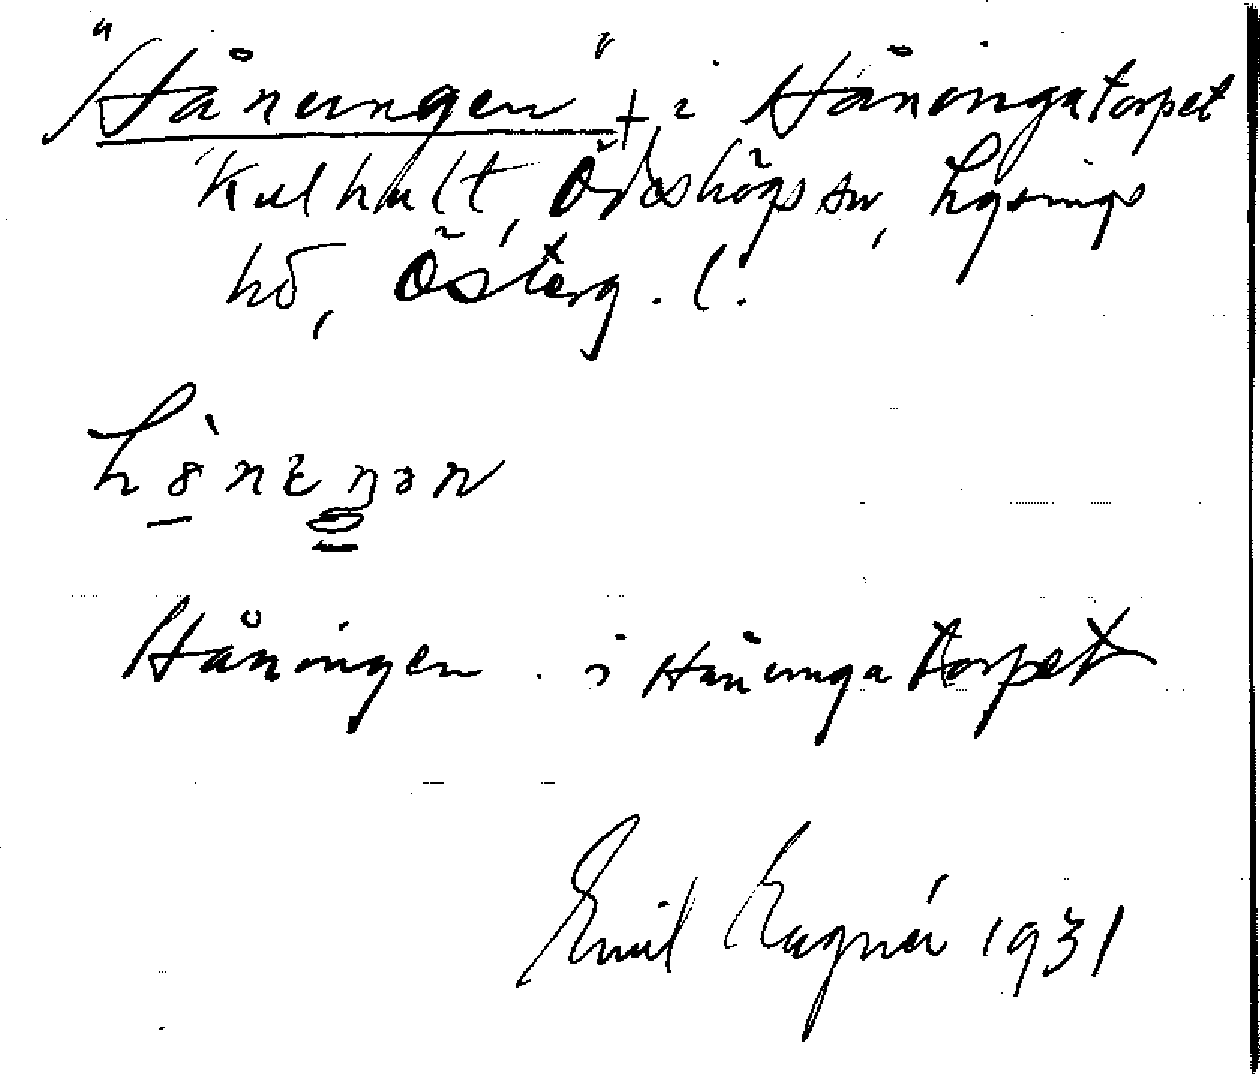 "Håningen" + i Håningatorpet
Kulhult, Ödeshögs sn, Lysings
hd, Österg. l.
Håningen . i Håningatorpet
Emil 1931